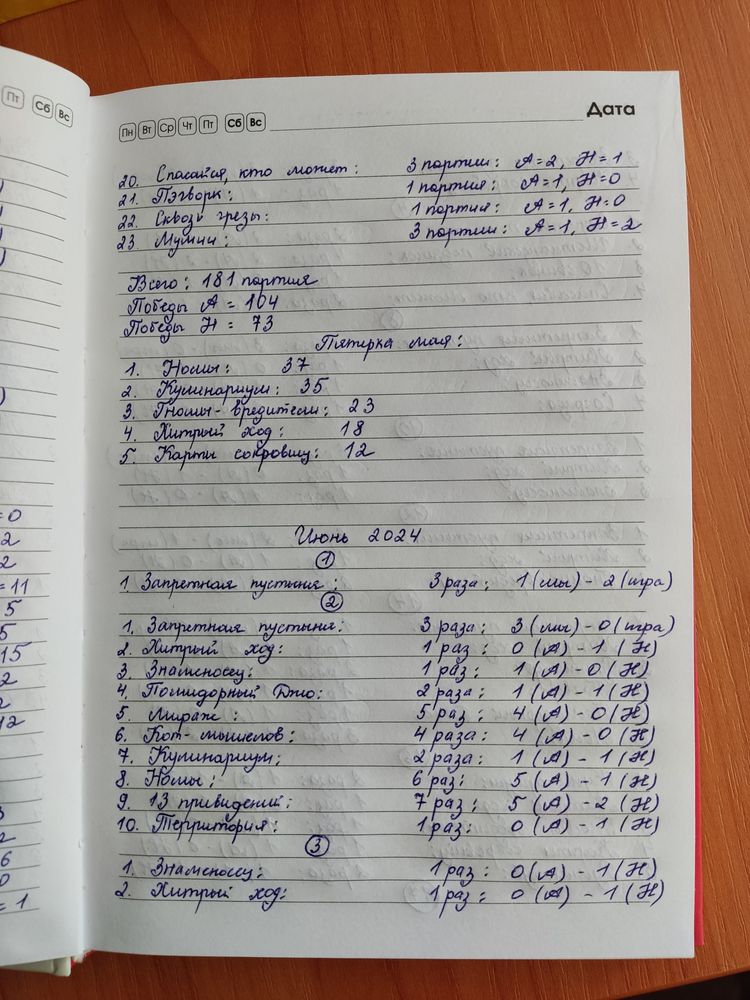 Пт Сб Вс
Пн Вт Ср Чт Пт Сб Вс Дата
20. Спасайся, кто может: 3 партии: А=2, Н=1
21. Пэчворк: 1 партия: А=1, Н=0
22. Сквозь грезы: 1 партия: А=1, Н=0
23 Мумии: 3 партии: А=1, Н=2
Всего: 181 партия
Победы А = 104
Победы Н = 73
Пятерка мая:
1. Номы: 37
2. Кулинариум: 35
3. Гномы-вредители: 23
4. Хитрый ход: 18
5. Карты сокровищ: 12
Июнь 2024
1
1. Запретная пустыня: 3 раза: 1 (мы) - 2 (игра)
2
1. Запретная пустыня: 3 раза: 3 (мы) - 0 (игра)
2. Хитрый ход: 1 раз: 0 (А) - 1 (Н)
3. Знаменосец: 1 раз: 1 (А) - 0 (Н)
4. Помидорный Джо: 2 раза: 1 (А) - 1 (Н)
5. Мираж: 5 раз: 4 (А) - 0 (Н)
6. Кот-мышелов: 4 раза: 4 (А) - 0 (Н)
7. Кулинариум: 2 раза: 1 (А) - 1 (Н)
8. Номы: 6 раз: 5 (А) - 1 (Н)
9. 13 привидений: 7 раз: 5 (А) - 2 (Н)
10. Территория: 1 раз: 0 (А) - 1 (Н)
3
1. Знаменосец: 1 раз: 0 (А) - 1 (Н)
2. Хитрый ход: 1 раз: 0 (А) - 1 (Н)